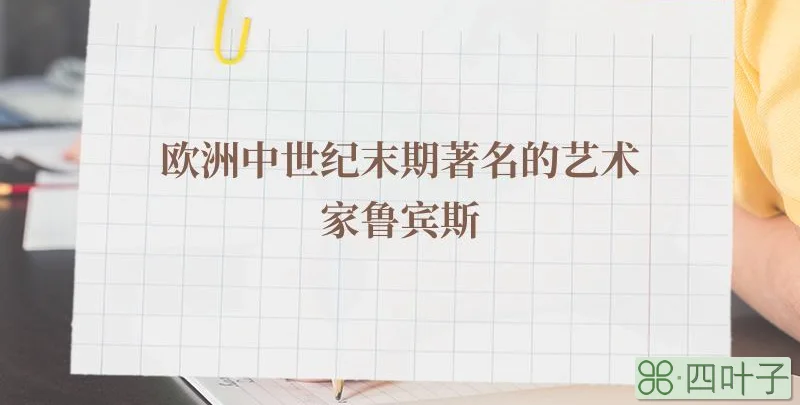 欧洲中世纪末期著名的艺术
家鲁宾斯
四叶子